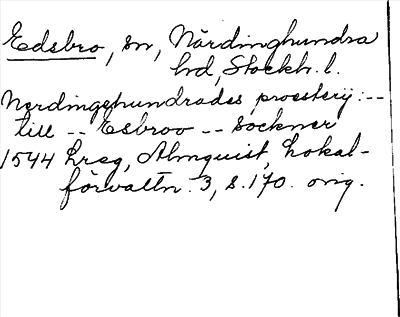 Edsbro, sn, Närdinghundra
hd, Stockh. l.
Nerdingghundrades proesterij: --
till -- Esbroo -- Sockner
1544 Lreg, Almquist, Lokal-
förvaltn. 3, s. 170. orig.